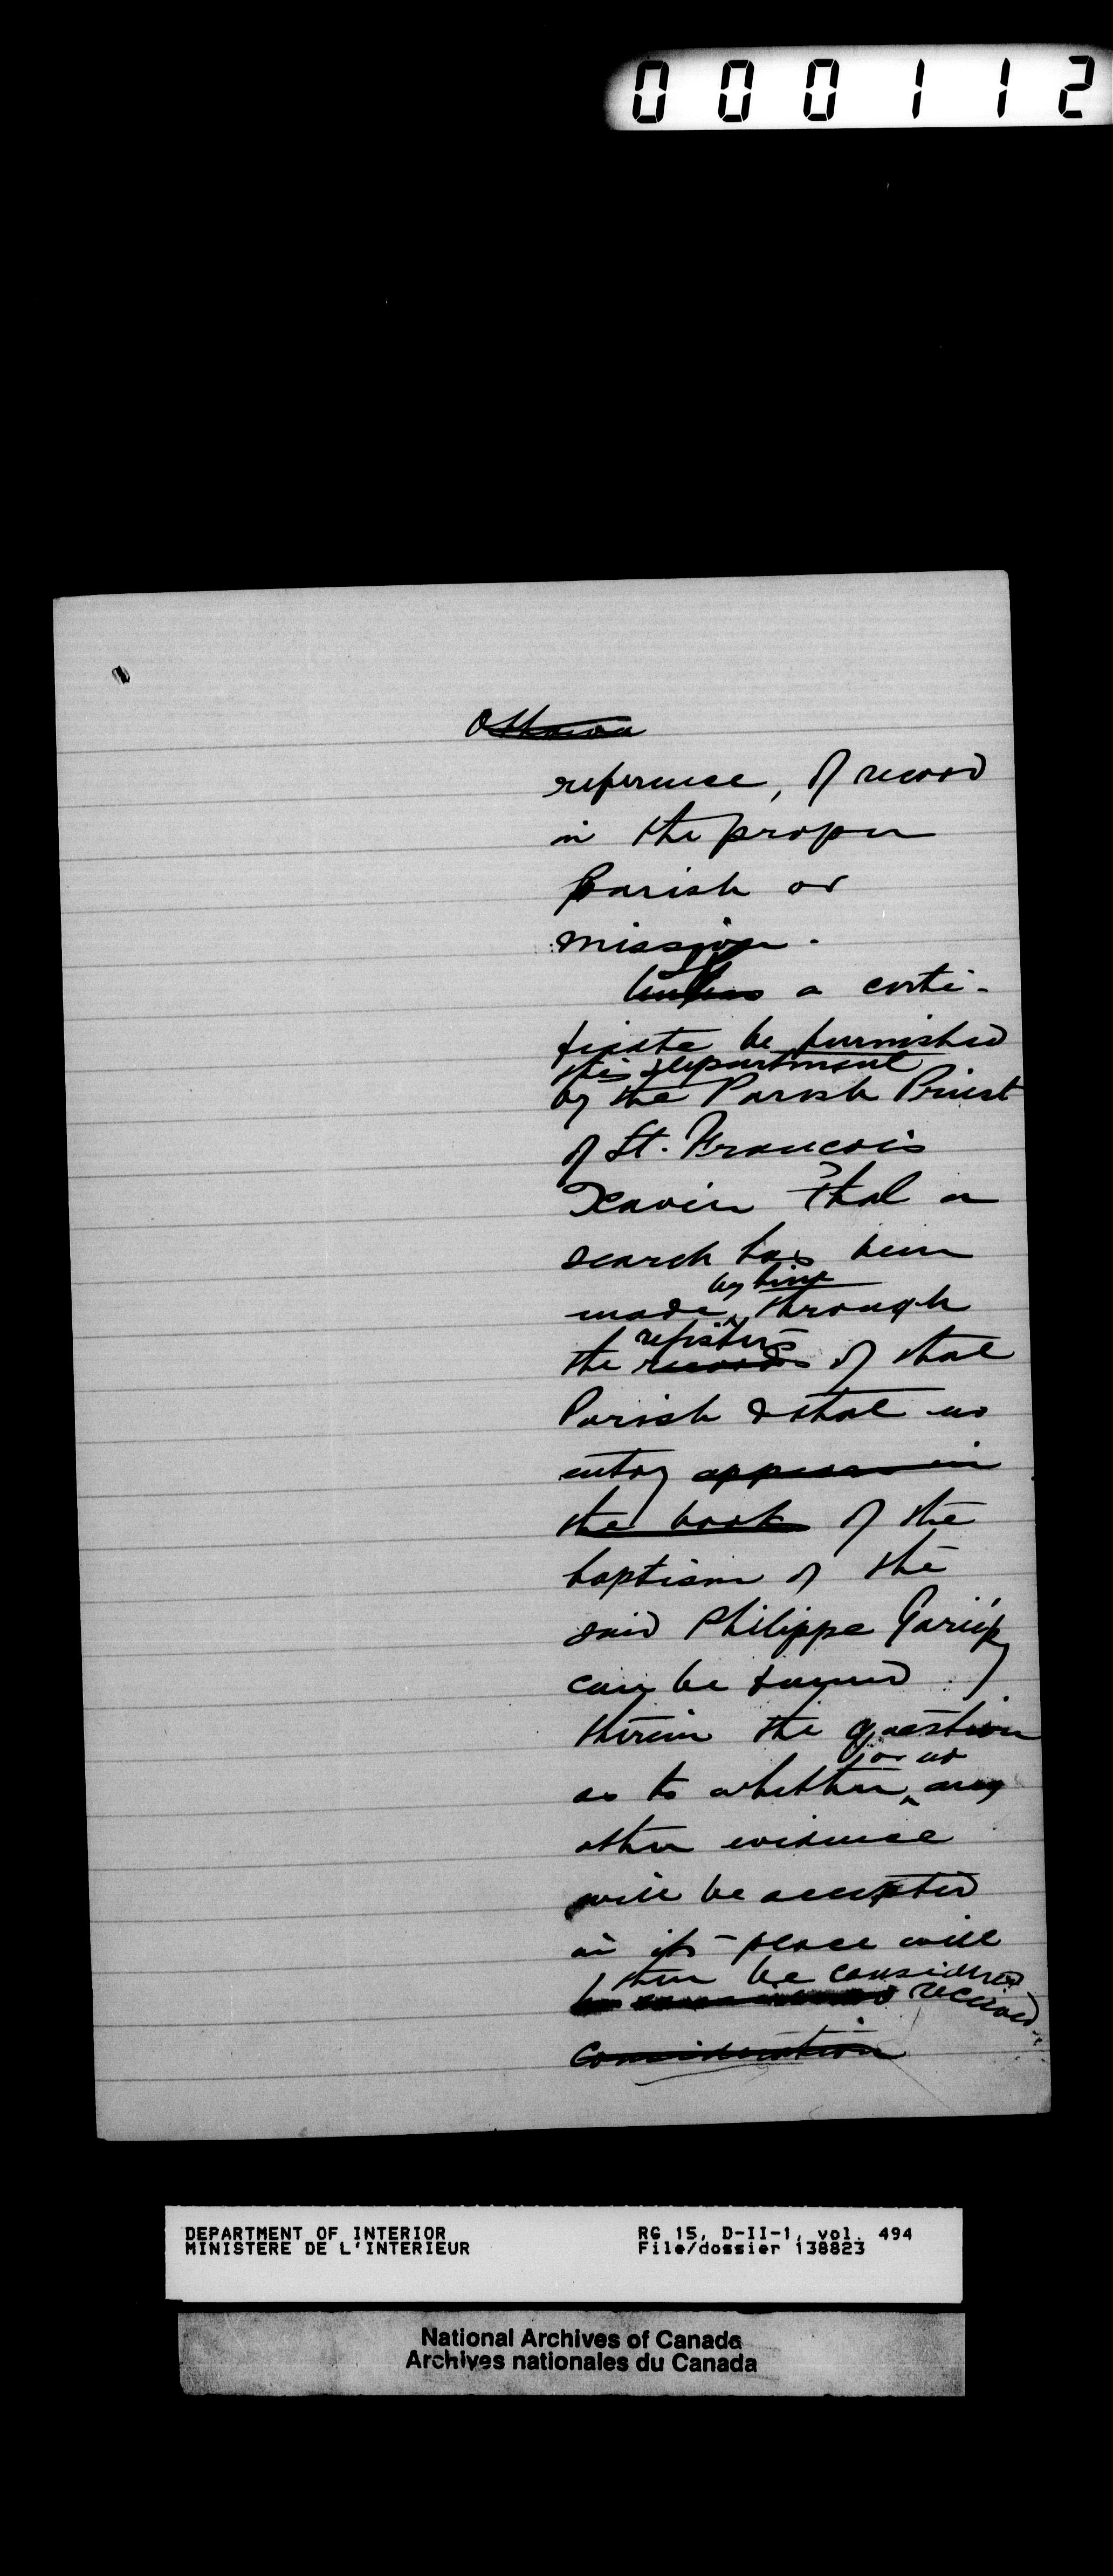 000112
Ottawa
reference, of record
in the proper
Parish or
mission.
If a certi-
ficate be furnished
this department
by the Parish Priest
of St. Francois
Xavier that a
search has been
by him
made through
registers
the records of that
Parish & that no
entry appears in
the book of the
baptism of the
said Philippe Gariépy
can be found
therein the question
or no
as to whether any
other evidence
will be accepted
in its place will
then be considered
received
consideration
DEPARTMENT OF INTERIOR
MINISTERE DE L'INTERIEUR
RG 15, D-II-1, vol. 494
File/dossier 138823
National Archives of Canada
Archives nationales du Canada